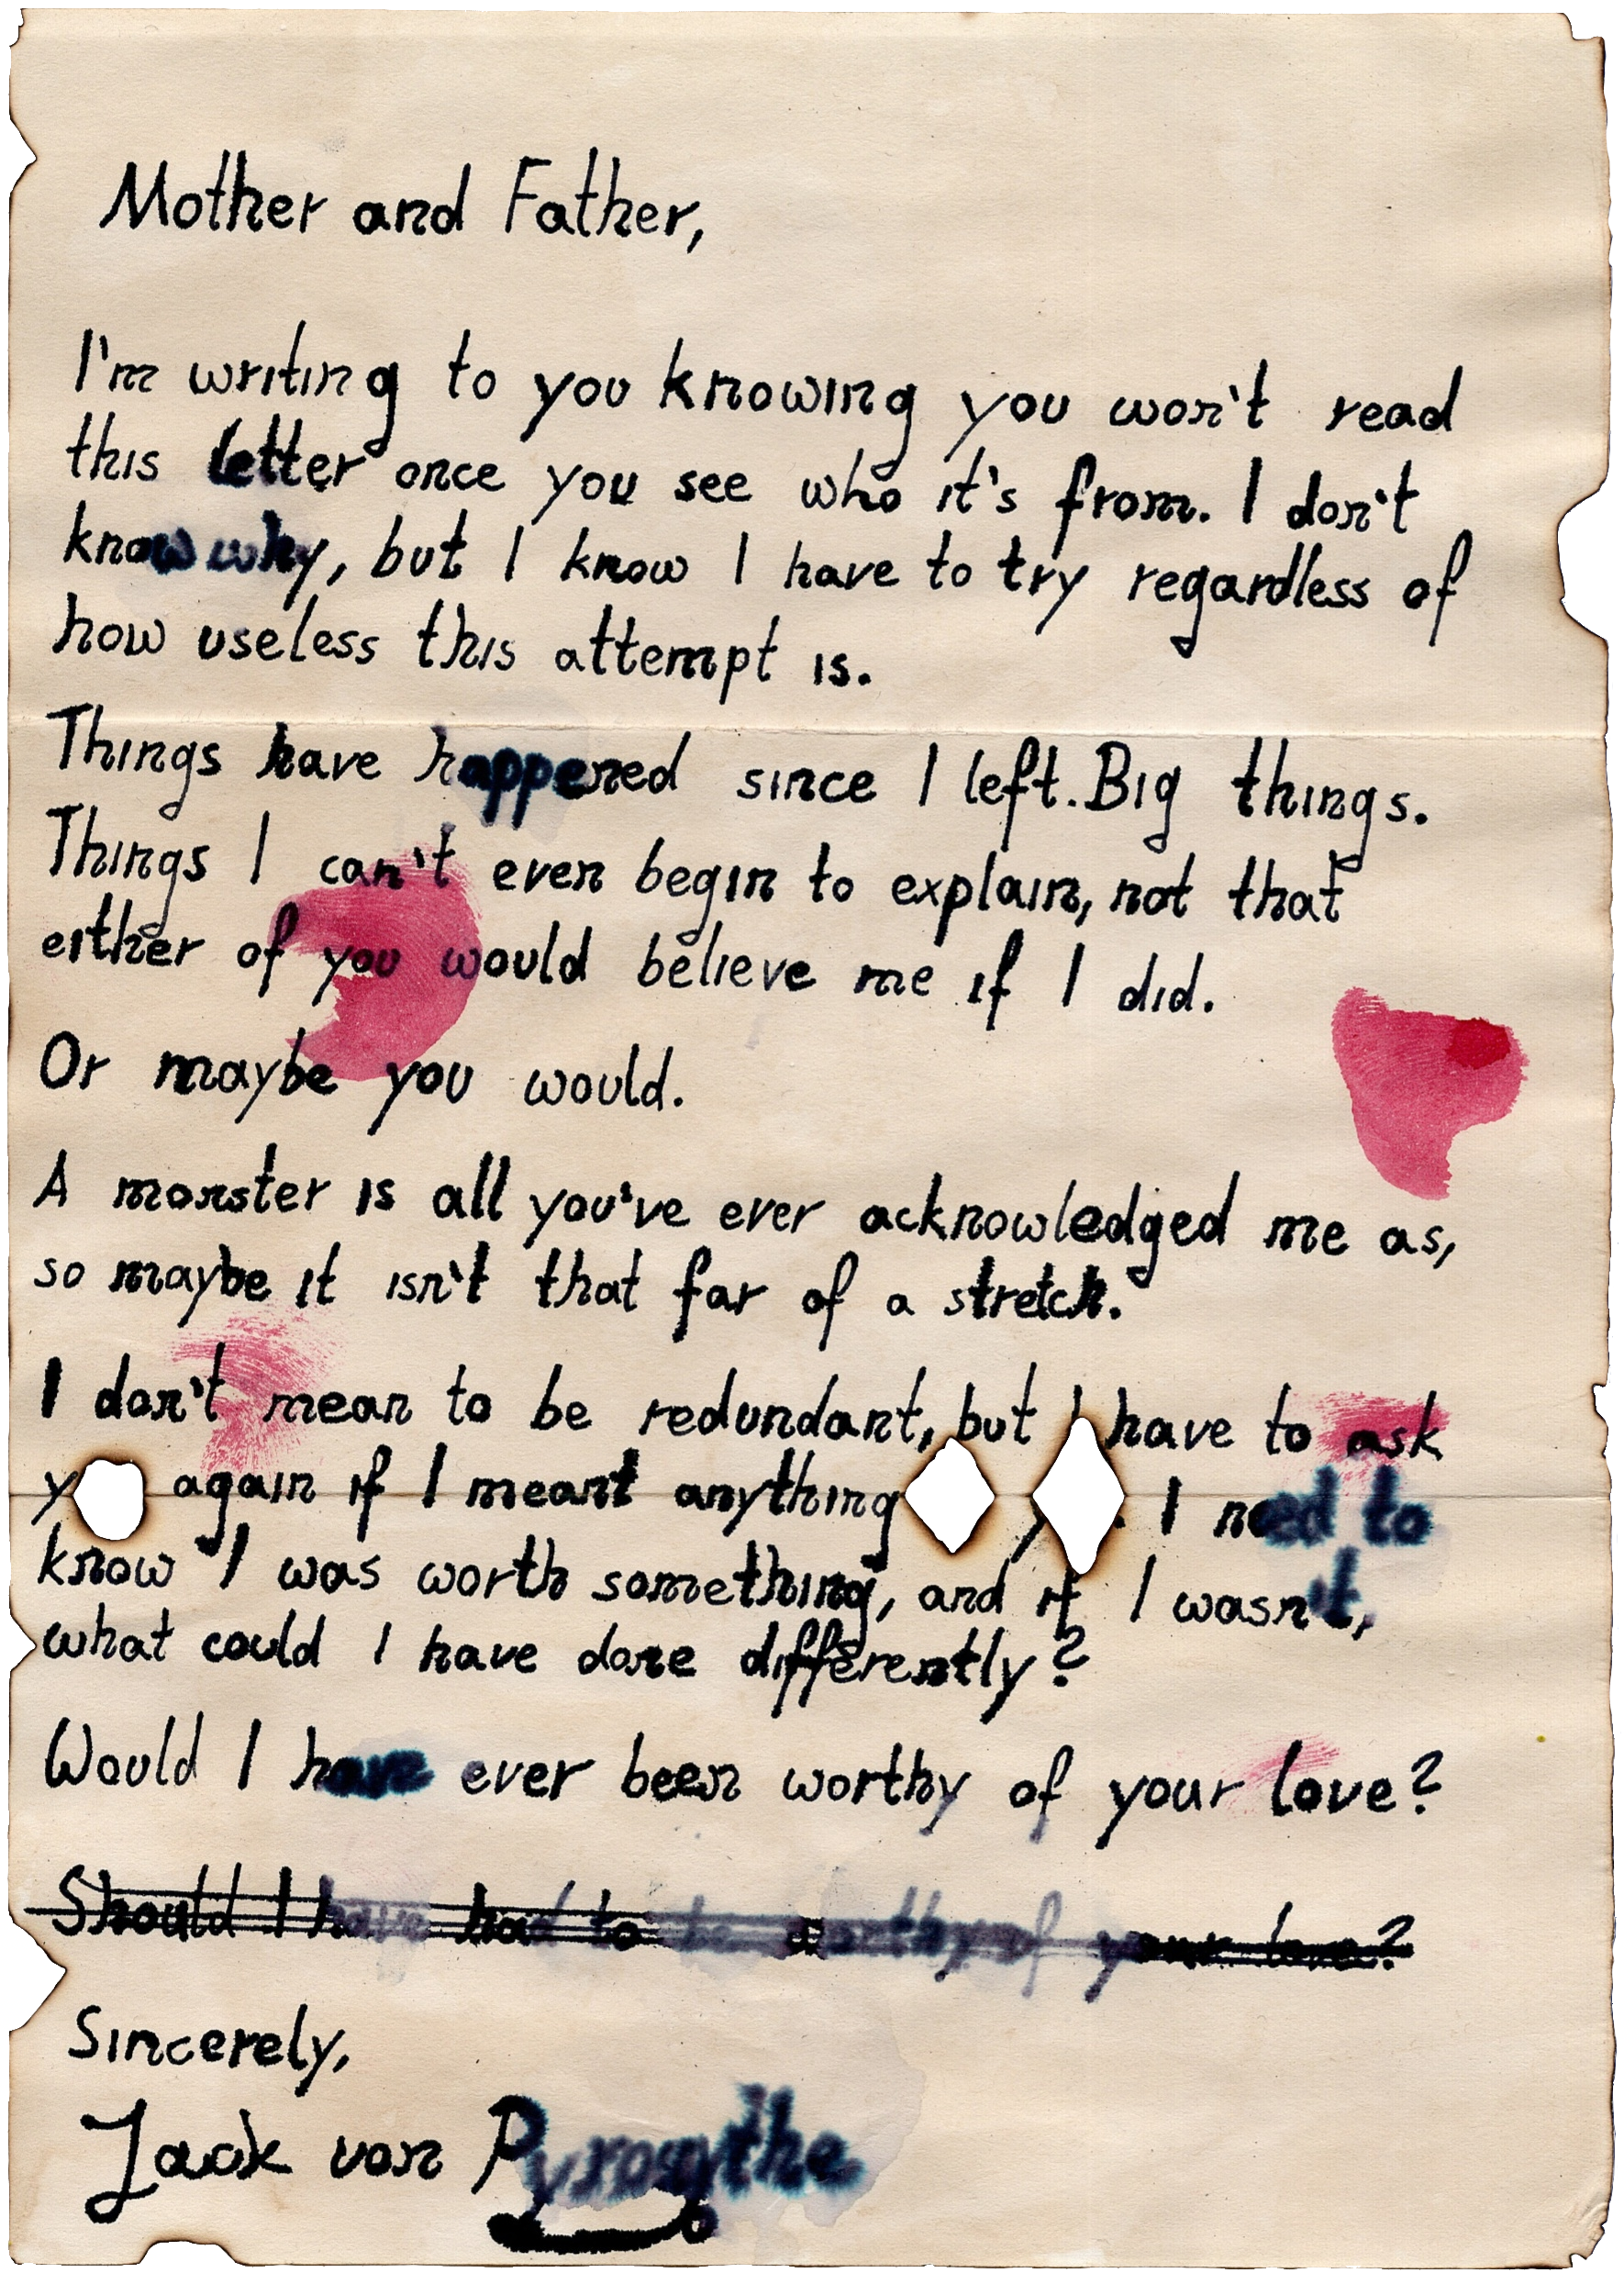 Mother and Father,
I'm writing to you knowing you won't read
this letter once you see who it's from. I don't
know why, but I know I have to try regardless of
how useless this attempt is.
Things have happened since I left. Big things.
Things I can't even begin to explain, not that
either of you would believe me if I did.
Or maybe you would.
A monster is all you've ever acknowledged me as,
so maybe it isn't that far of a stretch.
I don't mean to be redundant, but I have to ask
again if I meant anything . I need to
know I was worth something, and if I wasn't,
what could I have done differently?
Would I have ever been worthy of your love?
Should I have had to be worthy of your love?
Sincerely,
Jack von